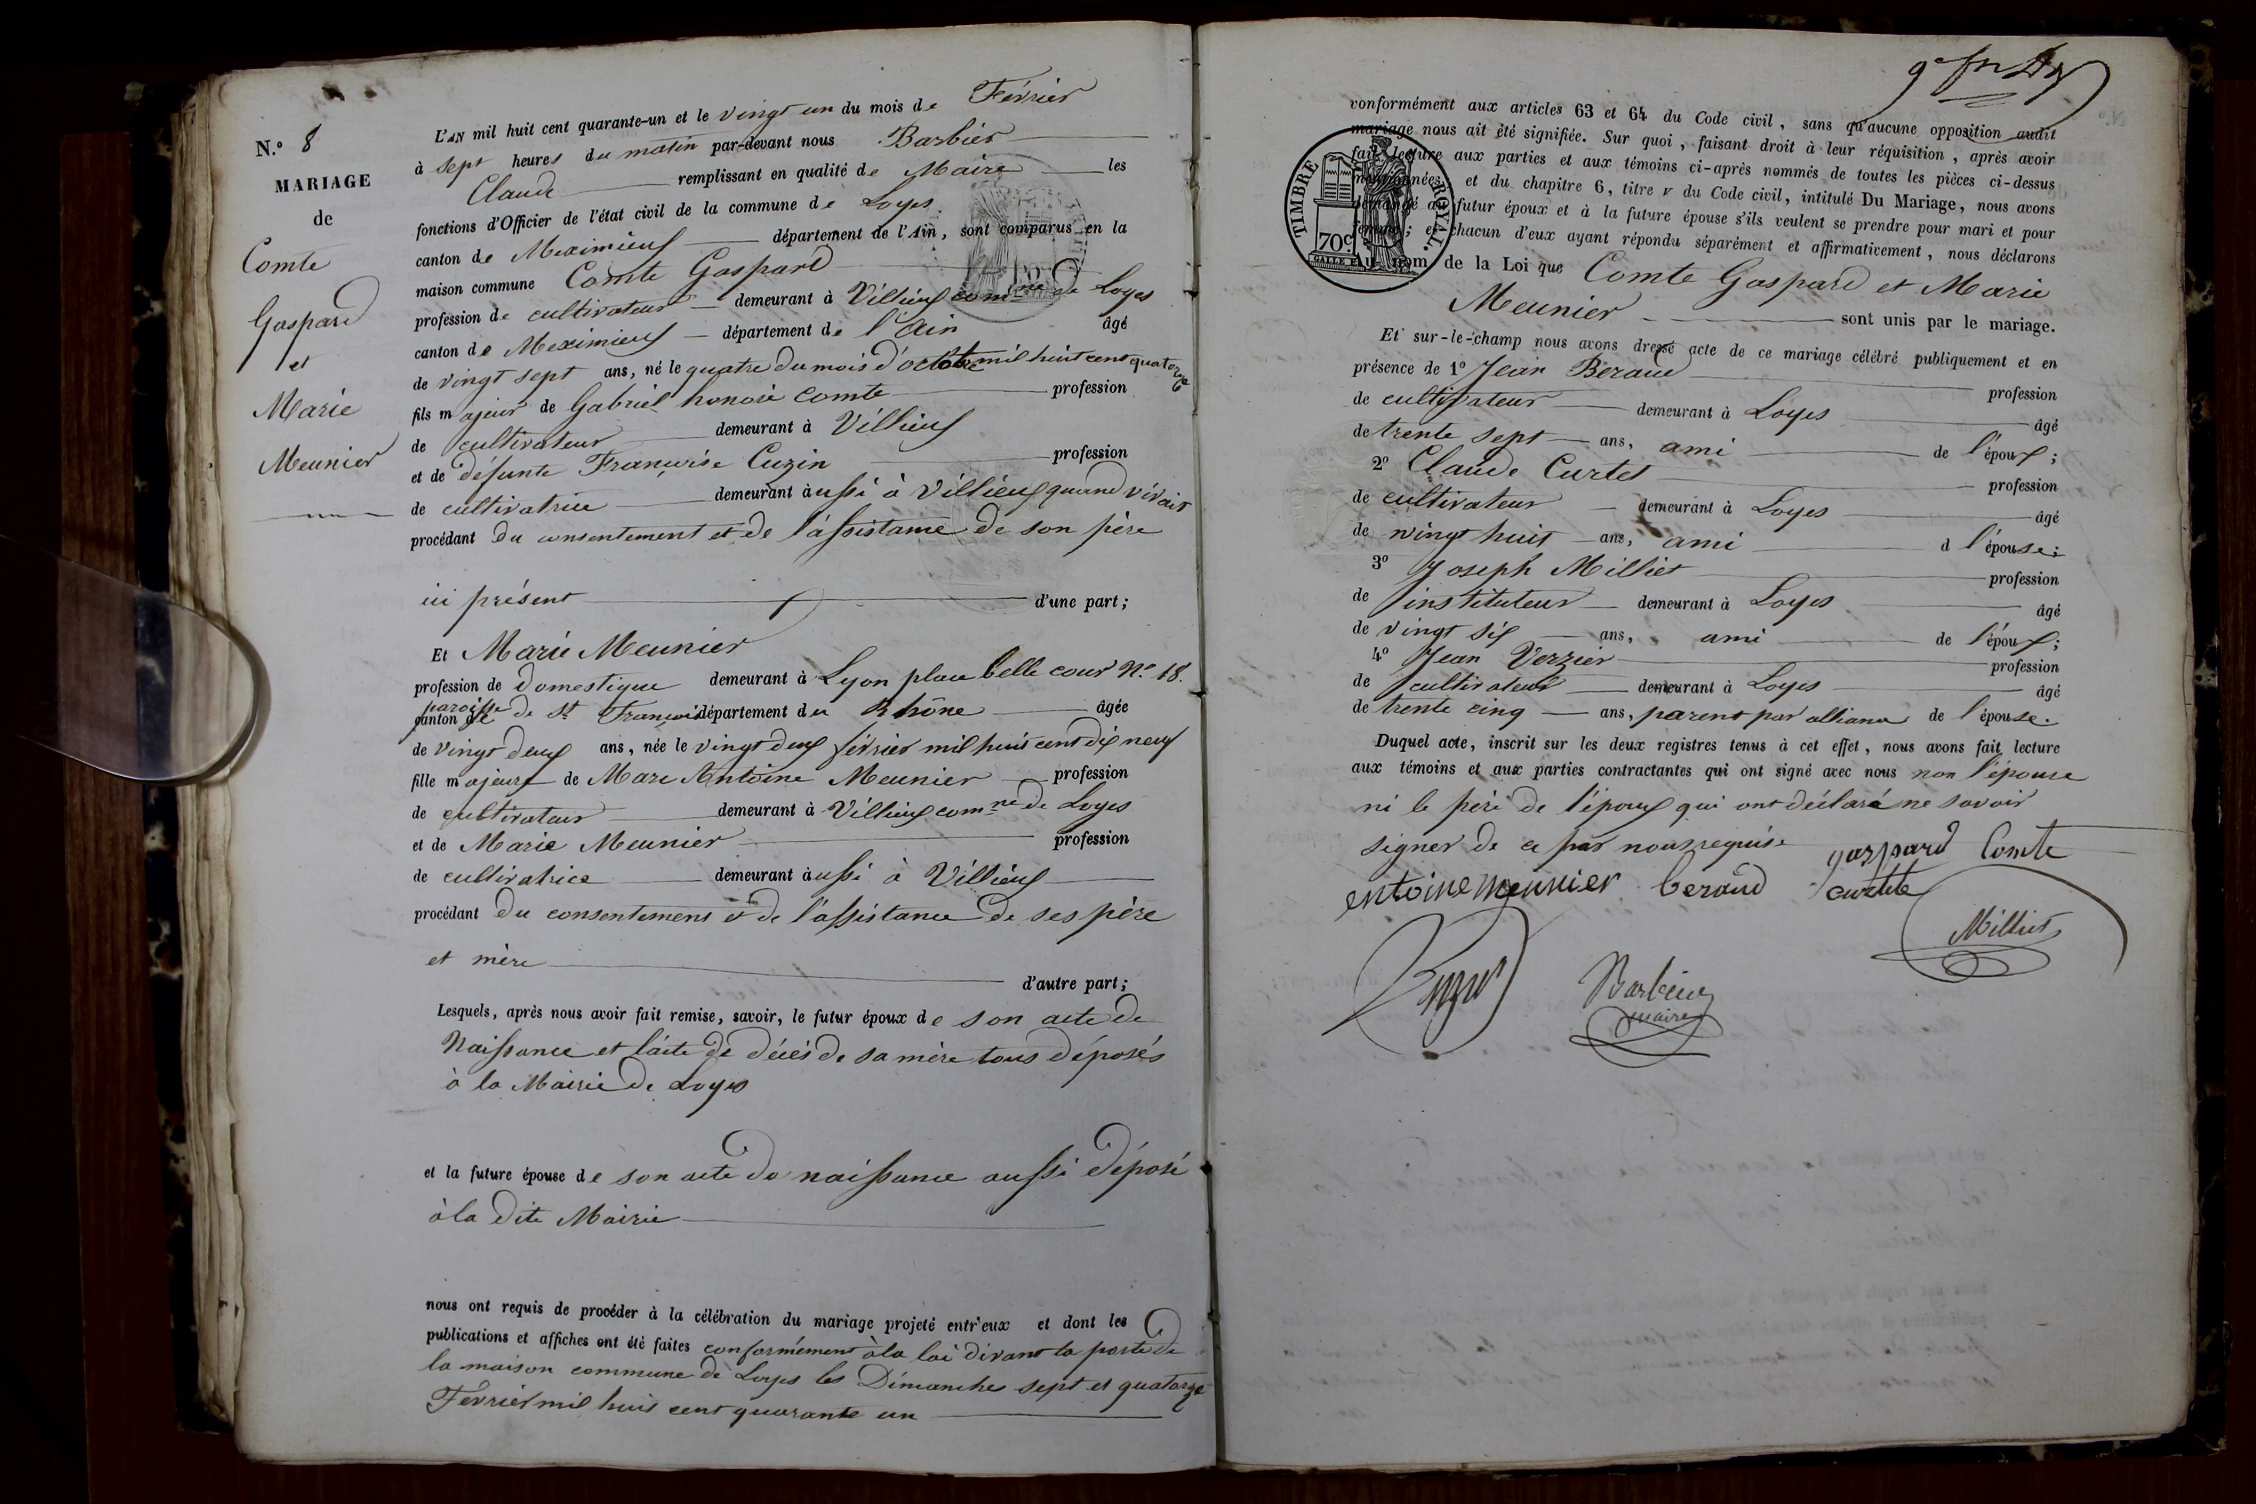 N.º 8
MARIAGE
de
Comte
Gaspard
et
Marie
Meunier
L'AN mil huit cent quarante-un et le vingt un du mois de Février
à sept heures du matin par-devant nous Barbier
Claude remplissant en qualité de Maire les
fonctions d'Officier de l'état civil de la commune de Loyes
canton de Meximieux département de l'Ain, sont comparus en la
maison commune Comte Gaspard
profession de cultivateur demeurant à Villieux comne de Loyes
canton de Meximieux département de l'Ain âgé
de vingt sept ans, né le quatre du mois d'octobre mil huit cent quatorze
fils majeur de Gabriel honoré Comte profession
de cultivateur demeurant à Villieux
et de défunte Françoise Cuzin profession
de cultivatrice demeurant aussi à Villieux quand vivait
procédant du consentement et de l'assistance de son père
ici présent d'une part;
Et Marie Meunier
profession de domestique demeurant à Lyon place belle cour N.º 18.
paroisse
canton de de St François département du Rhône âgée
de vingt deux ans, née le vingt deux février mil huit cent dix neuf
fille majeure de Marc Antoine Meunier profession
de cultivateur demeurant à Villieux comne de Loyes
et de Marie Meunier profession
de cultivatrice demeurant aussi à Villieux
procédant du consentement et de l'assistance de ses père
et mère d'autre part;
Lesquels, après nous avoir fait remise, savoir, le futur époux de son acte de
Naissance et l'acte de décès de sa mère tous déposés
à la Mairie de Loyes
et la future épouse de son acte de naissance aussi déposé
à la dite Mairie
nous ont requis de procéder à la célébration du mariage projeté entr'eux et dont les
publications et affiches ont été faites conformément à la loi devant la porte de
la maison commune de Loyes les Dimanches sept et quatorze
Février mil huit cent quarante un
conformément aux articles 63 et 64 du Code civil, sans qu'aucune opposition audit
mariage nous ait été signifiée. Sur quoi, faisant droit à leur réquisition, après avoir
fait lecture aux parties et aux témoins ci-après nommés de toutes les pièces ci-dessus
mentionnées, et du chapitre 6, titre v du Code civil, intitulé Du Mariage, nous avons
demandé au futur époux et à la future épouse s'ils veulent se prendre pour mari et pour
femme; et chacun d'eux ayant répondu séparément et affirmativement, nous déclarons
Au nom de la Loi que Comte Gaspard et Marie
TIMBRE ROYAL.
70c
Meunier sont unis par le mariage.
Et sur-le-champ nous avons dressé acte de ce mariage célébré publiquement et en
présence de 1º Jean Beraud profession
de cultivateur demeurant à Loyes âgé
de trente sept ans, ami de l'époux;
2º Claude Curtet profession
de cultivateur demeurant à Loyes âgé
de vingt huit ans, ami d l'épouse;
3º Joseph Milliet profession
de instituteur demeurant à Loyes âgé
de vingt six ans, ami de l'époux;
4º Jean Verzier profession
de cultivateur demeurant à Loyes âgé
de trente cinq ans, parent par alliance de l'épouse.
Duquel acte, inscrit sur les deux registres tenus à cet effet, nous avons fait lecture
aux témoins et aux parties contractantes qui ont signé avec nous non l'épouse
ni le père de l'époux qui ont déclaré ne savoir
signer de ce par nous requis.
gaspard Comte
entoine meunier beraud curtete
Milliet
Barbier
maire